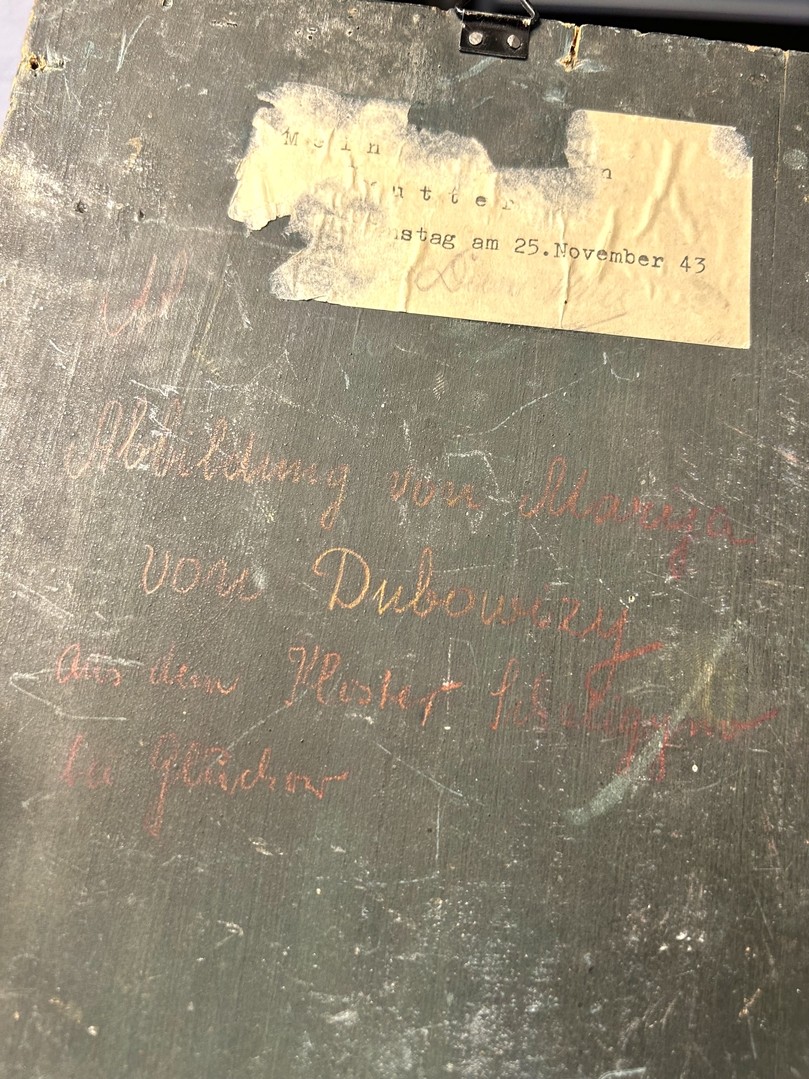 M e i n n
M u t t e r
nstag am 25.November 43
Abbildung von Marija
von Dubowizy
aus dem Kloster
Gluchow